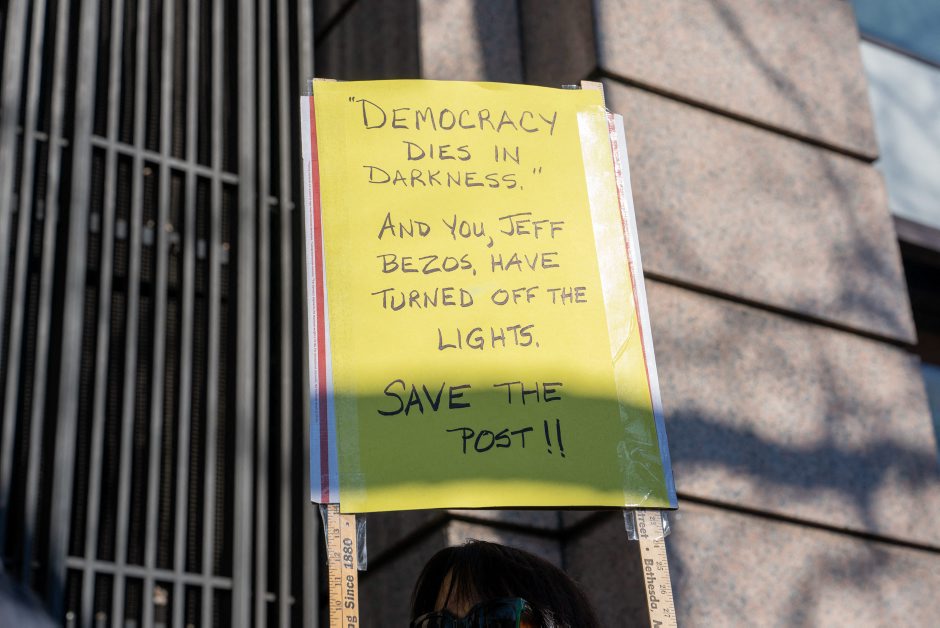 "DEMOCRACY
DIES IN
DARKNESS."
AND YOU, JEFF
BEZOS, HAVE
TURNED OFF THE
LIGHTS.
SAVE THE
POST!!
Since 1880
Street • Bethesda,